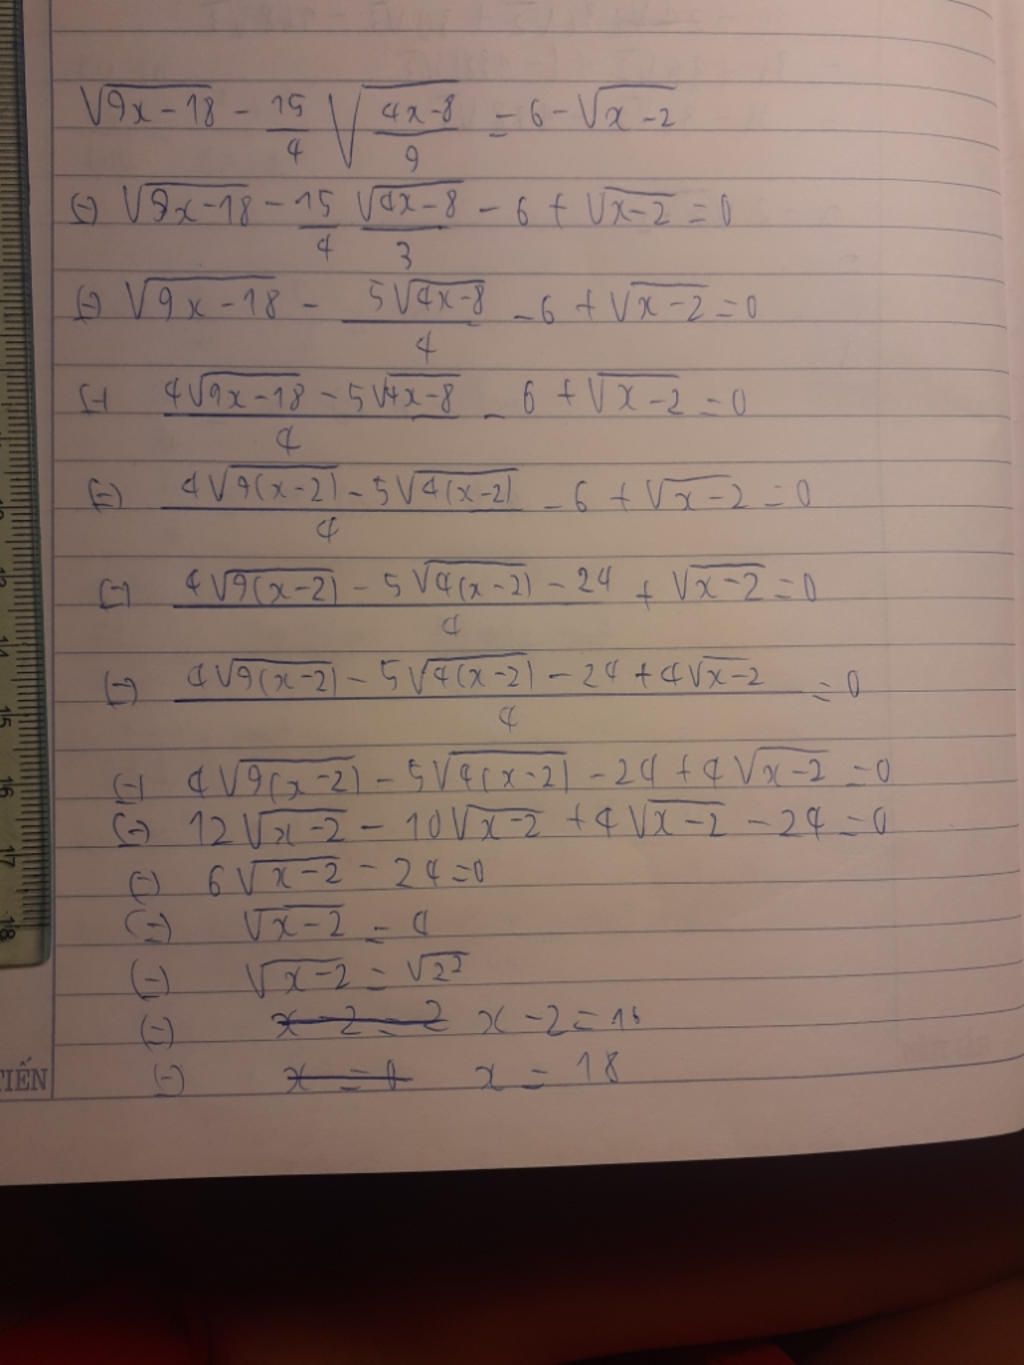 √(9x-18) - 15/4 √((4x-8)/9) = 6 - √(x-2)
(=) √(9x-18) - 15/4 √(4x-8)/3 - 6 + √(x-2) = 0
(=) √(9x-18) - 5√(4x-8)/4 - 6 + √(x-2) = 0
(=) (4√(9x-18) - 5√(4x-8))/4 - 6 + √(x-2) = 0
(=) (4√(9(x-2)) - 5√(4(x-2)))/4 - 6 + √(x-2) = 0
(=) (4√(9(x-2)) - 5√(4(x-2)) - 24)/4 + √(x-2) = 0
(=) (4√(9(x-2)) - 5√(4(x-2)) - 24 + 4√(x-2))/4 = 0
(=) 4√(9(x-2)) - 5√(4(x-2)) - 24 + 4√(x-2) = 0
(=) 12√(x-2) - 10√(x-2) + 4√(x-2) - 24 = 0
(=) 6√(x-2) - 24 = 0
(=) √(x-2) = 4
(=) √(x-2) = √(2²)
(=) x - 2 = 2 x - 2 = 16
(=) x = 0 x = 18
TIẾN
13
14
15
16
17
18